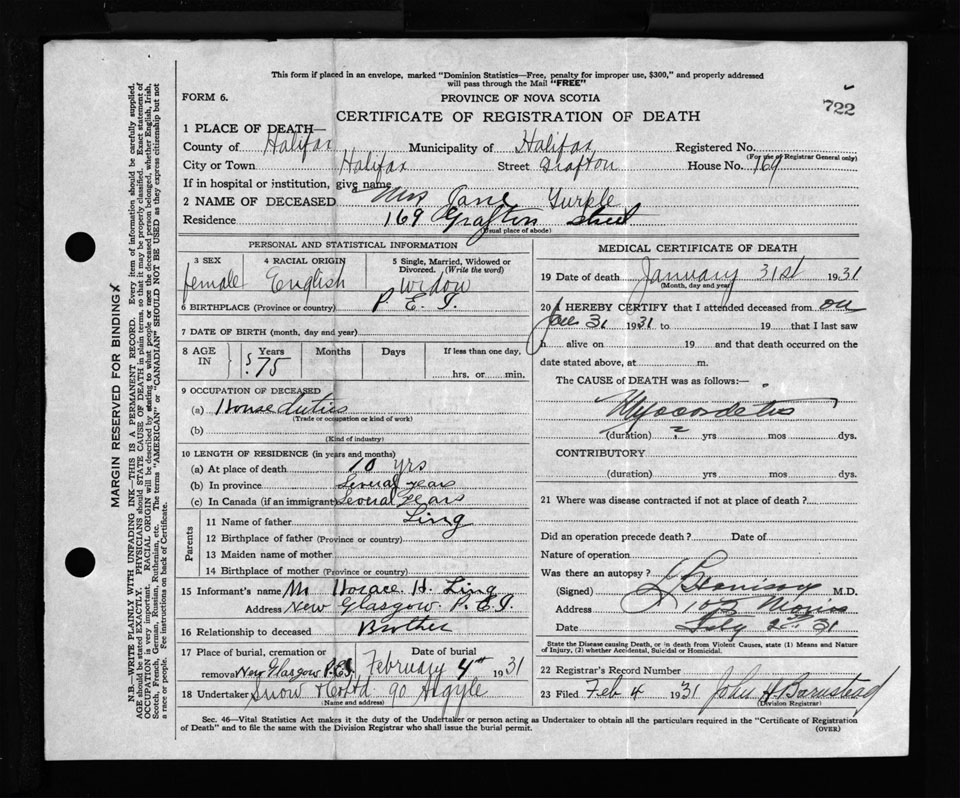 This form if placed in an envelope, marked "Dominion Statistics—Free, penalty for improper use, $300," and properly addressed
will pass through the Mail "FREE"
FORM 6.
PROVINCE OF NOVA SCOTIA
722
CERTIFICATE OF REGISTRATION OF DEATH
1 PLACE OF DEATH—
County of Halifax Municipality of Halifax Registered No.
(For use of Registrar General only)
City or Town Halifax Street Grafton House No. 169
If in hospital or institution, give name
2 NAME OF DECEASED Mrs Jane Turple
Residence 169 Grafton Street
(Usual place of abode)
PERSONAL AND STATISTICAL INFORMATION
3 SEX 4 RACIAL ORIGIN 5 Single, Married, Widowed or
Divorced. (Write the word)
female English Widow
6 BIRTHPLACE (Province or country) P. E. I.
7 DATE OF BIRTH (month, day and year)
8 AGE IN Years Months Days If less than one day,
75 hrs. or min.
9 OCCUPATION OF DECEASED
(a) House duties
(Trade or occupation or kind of work)
(b)
(Kind of industry)
10 LENGTH OF RESIDENCE (in years and months)
(a) At place of death 10 yrs
(b) In province Several years
(c) In Canada (if an immigrant) Several Years
Parents
11 Name of father Ling
12 Birthplace of father (Province or country)
13 Maiden name of mother
14 Birthplace of mother (Province or country)
15 Informant's name Mr Horace H. Ling
Address New Glasgow. P.E.I.
16 Relationship to deceased Brother
17 Place of burial, cremation or
removal New Glasgow P.E.I. Date of burial February 4th 1931
18 Undertaker Snow & Co Ltd 90 Argyle
(Name and address)
MEDICAL CERTIFICATE OF DEATH
19 Date of death January 31st 1931
(Month, day and year)
20 I HEREBY CERTIFY that I attended deceased from on
Jan 31 1931 to 19 that I last saw
h alive on 19 and that death occurred on the
date stated above, at m.
The CAUSE OF DEATH was as follows:—
Myocarditis
(duration) ? yrs mos dys.
CONTRIBUTORY
(duration) yrs mos dys.
21 Where was disease contracted if not at place of death?
Did an operation precede death? Date of
Nature of operation
Was there an autopsy?
(Signed) M.D.
Address Morris
Date 31
State the Disease causing Death, or in death from Violent Causes, state (1) Means and Nature
of Injury, (2) whether Accidental, Suicidal or Homicidal.
22 Registrar's Record Number
23 Filed Feb 4 1931 John H Barnstead
(Division Registrar)
Sec. 46—Vital Statistics Act makes it the duty of the Undertaker or person acting as Undertaker to obtain all the particulars required in the "Certificate of Registration
of Death" and to file the same with the Division Registrar who shall issue the burial permit.
(OVER)
MARGIN RESERVED FOR BINDING
N.B.—WRITE PLAINLY WITH UNFADING INK—THIS IS A PERMANENT RECORD. Every item of information should be carefully supplied.
AGE should be stated EXACTLY. PHYSICIANS should STATE CAUSE OF DEATH in plain terms, so that it may be properly classified. Exact statement of
OCCUPATION is very important. RACIAL ORIGIN will be described by stating to what people or race the deceased person belonged, whether English, Irish,
Scotch, French, German, Russian, Ruthenian, etc. The terms "AMERICAN" or "CANADIAN" SHOULD NOT BE USED as they express citizenship but not
a race or people. Fee instructions on back of Certificate.